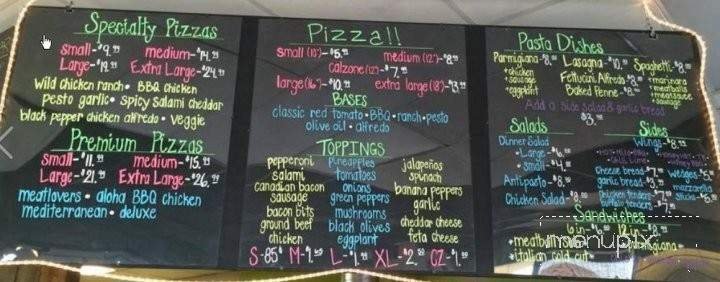 Specialty Pizzas
small-$9.99 medium-$14.99
Large-$19.99 Extra Large-$24.99
Wild chicken ranch • BBQ chicken
pesto garlic • spicy salami cheddar
black pepper chicken alfredo • veggie
Premium Pizzas
Small-$11.99 medium-$15.99
Large-$21.99 Extra Large-$26.99
meatlovers • aloha BBQ chicken
mediterranean • deluxe
Pizza!!
small (10")-$5.99 medium (12")-$8.99
calzone (12")-$7.99
large (16")-$10.99 extra large (18")-$13.99
BASES
classic red tomato • BBQ • ranch • pesto
olive oil • alfredo
TOPPINGS
pepperoni pineapples jalapeños
salami tomatoes spinach
canadian bacon onions banana peppers
sausage green peppers garlic
bacon bits mushrooms cheddar cheese
ground beef black olives feta cheese
chicken eggplant
S-85¢ M-$1. L-$1. XL-$2. CZ-$1.
Pasta Dishes
Parmigiana-$8. Lasagna-$10. Spaghetti-$8.
• chicken Fettucini Alfredo-$8. • marinara
• sausage Baked Penne-$8. • meatballs
• eggplant • meatsauce
• sausage
Add a side salad & garlic bread
$3.
Salads Sides
Dinner Salad Wings-$8.
• Large-$6.
• small-$4.
Cheese bread-$7. Wedges-$5.
Antipasto-$8. garlic bread-$3. mozzarella
Chicken Salad chicken tenders sticks-$5.
buffalo tenders
Sandwiches
6 in-$6. 12 in-$8.
• meatball
• italian cold cut
menupix